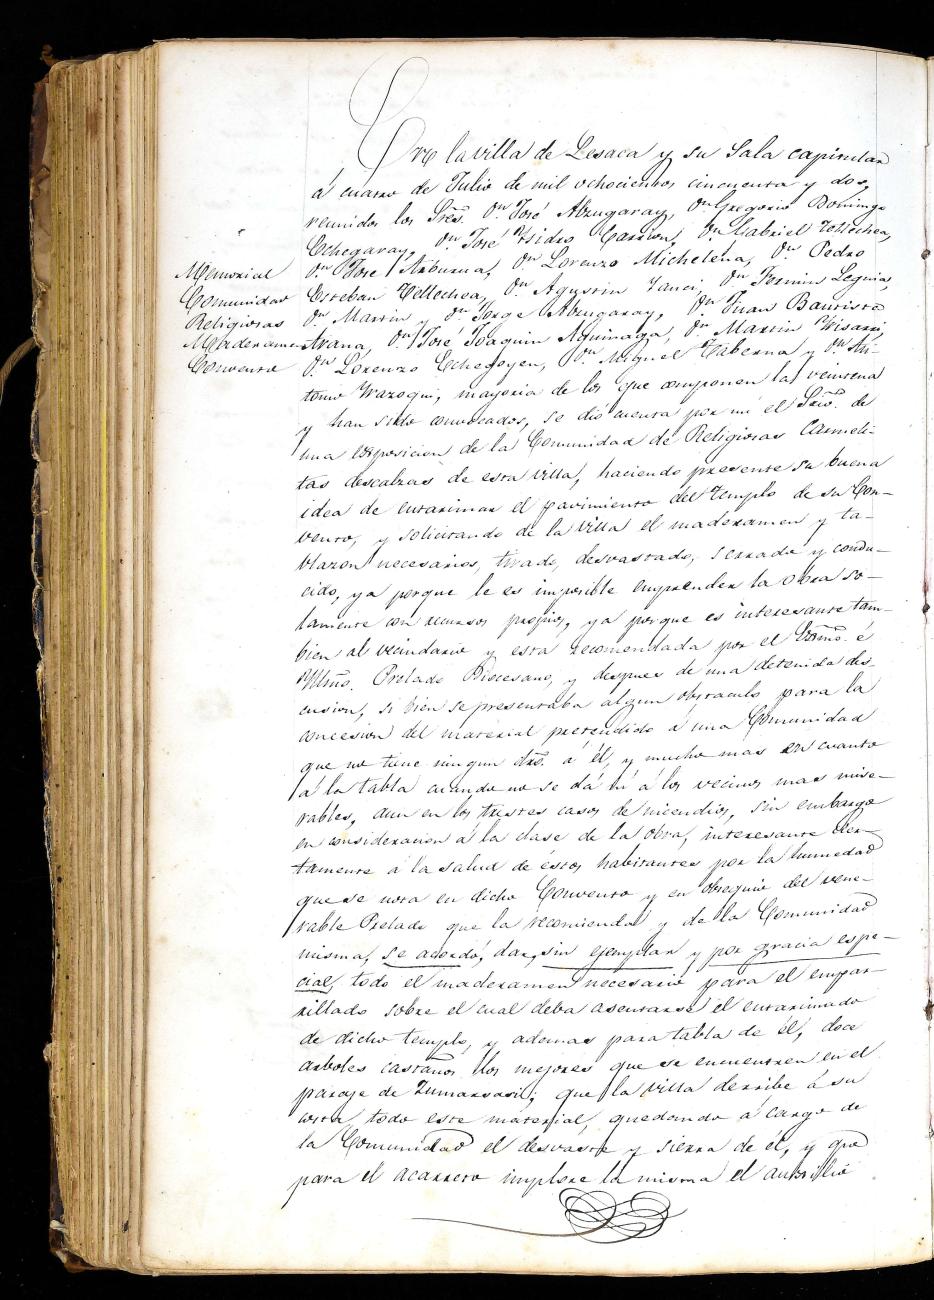 En la villa de Lesaca y su Sala capitular
á cuatro de Julio de mil ochocientos cincuenta y dos,
reunidos los Sres. Dn José Abzugaray, Dn Gregorio Domingo
Echegaray, Dn José Ysidro Carrion, Dn Gabriel Tellechea,
Dn José Arburua, Dn Lorenzo Michelena, Dn Pedro
Esteban Tellechea, Dn Agustin Yanci, Dn Fermin Leguia,
Dn Martin y Dn Jorge Abzugaray, Dn Juan Bautista
Arana, Dn José Joaquin Aguinaga, Dn Martin Yrisarri,
Dn Lorenzo Echegoyen, Dn Miguel Taberna y Dn An-
tonio Yrazoqui, mayoria de los que componen la veintena
y han sido convocados, se dió cuenta por mi el Srio. de
una exposicion de la Comunidad de Religiosas Carmeli-
tas descalzas de esta villa, haciendo presente su buena
idea de entarimar el pavimiento del templo de su Con-
vento, y solicitando de la villa el maderamen y ta-
blazon necesarios, tirado, desvastado, serrado y condu-
cido, ya porque le es imposible emprender la obra so-
lamente con recursos propios, ya porque es interesante tam-
bien al vecindario y esta recomendada por el Exmo. é
Yllmo. Prelado Diocesano, y despues de una detenida dis-
cusion, si bien se presentaba algun obstaculo para la
concesion del material pretendido á una Comunidad
que no tiene ningun dro. á él, y mucho mas en cuanto
á la tabla cuando no se dá ni á los vecinos mas mise-
rables, aun en los tristes casos de incendios, sin embargo
en consideracion á la clase de la obra, interesante cier-
tamente á la salud de éstos habitantes por la humedad
que se nota en dicho Convento y en obsequio del vene-
rable Prelado que la recomienda y de la Comunidad
misma, se acordó, dar, sin ejemplar y por gracia espe-
cial, todo el maderamen necesario para el empar-
rillado sobre el cual deba asentarse el entarimado
de dicho templo, y ademas para tabla de él, doce
arboles castaños los mejores que se encuentren en el
paraje de Zumarsasil; que la villa derribe á su
costa, todo este material, quedando á cargo de
la Comunidad el desvaste y sierra de él, y que
para el acarreo implore la misma el ausilio
Memorial
Comunidad
Religiosas
Maderamen
Convento